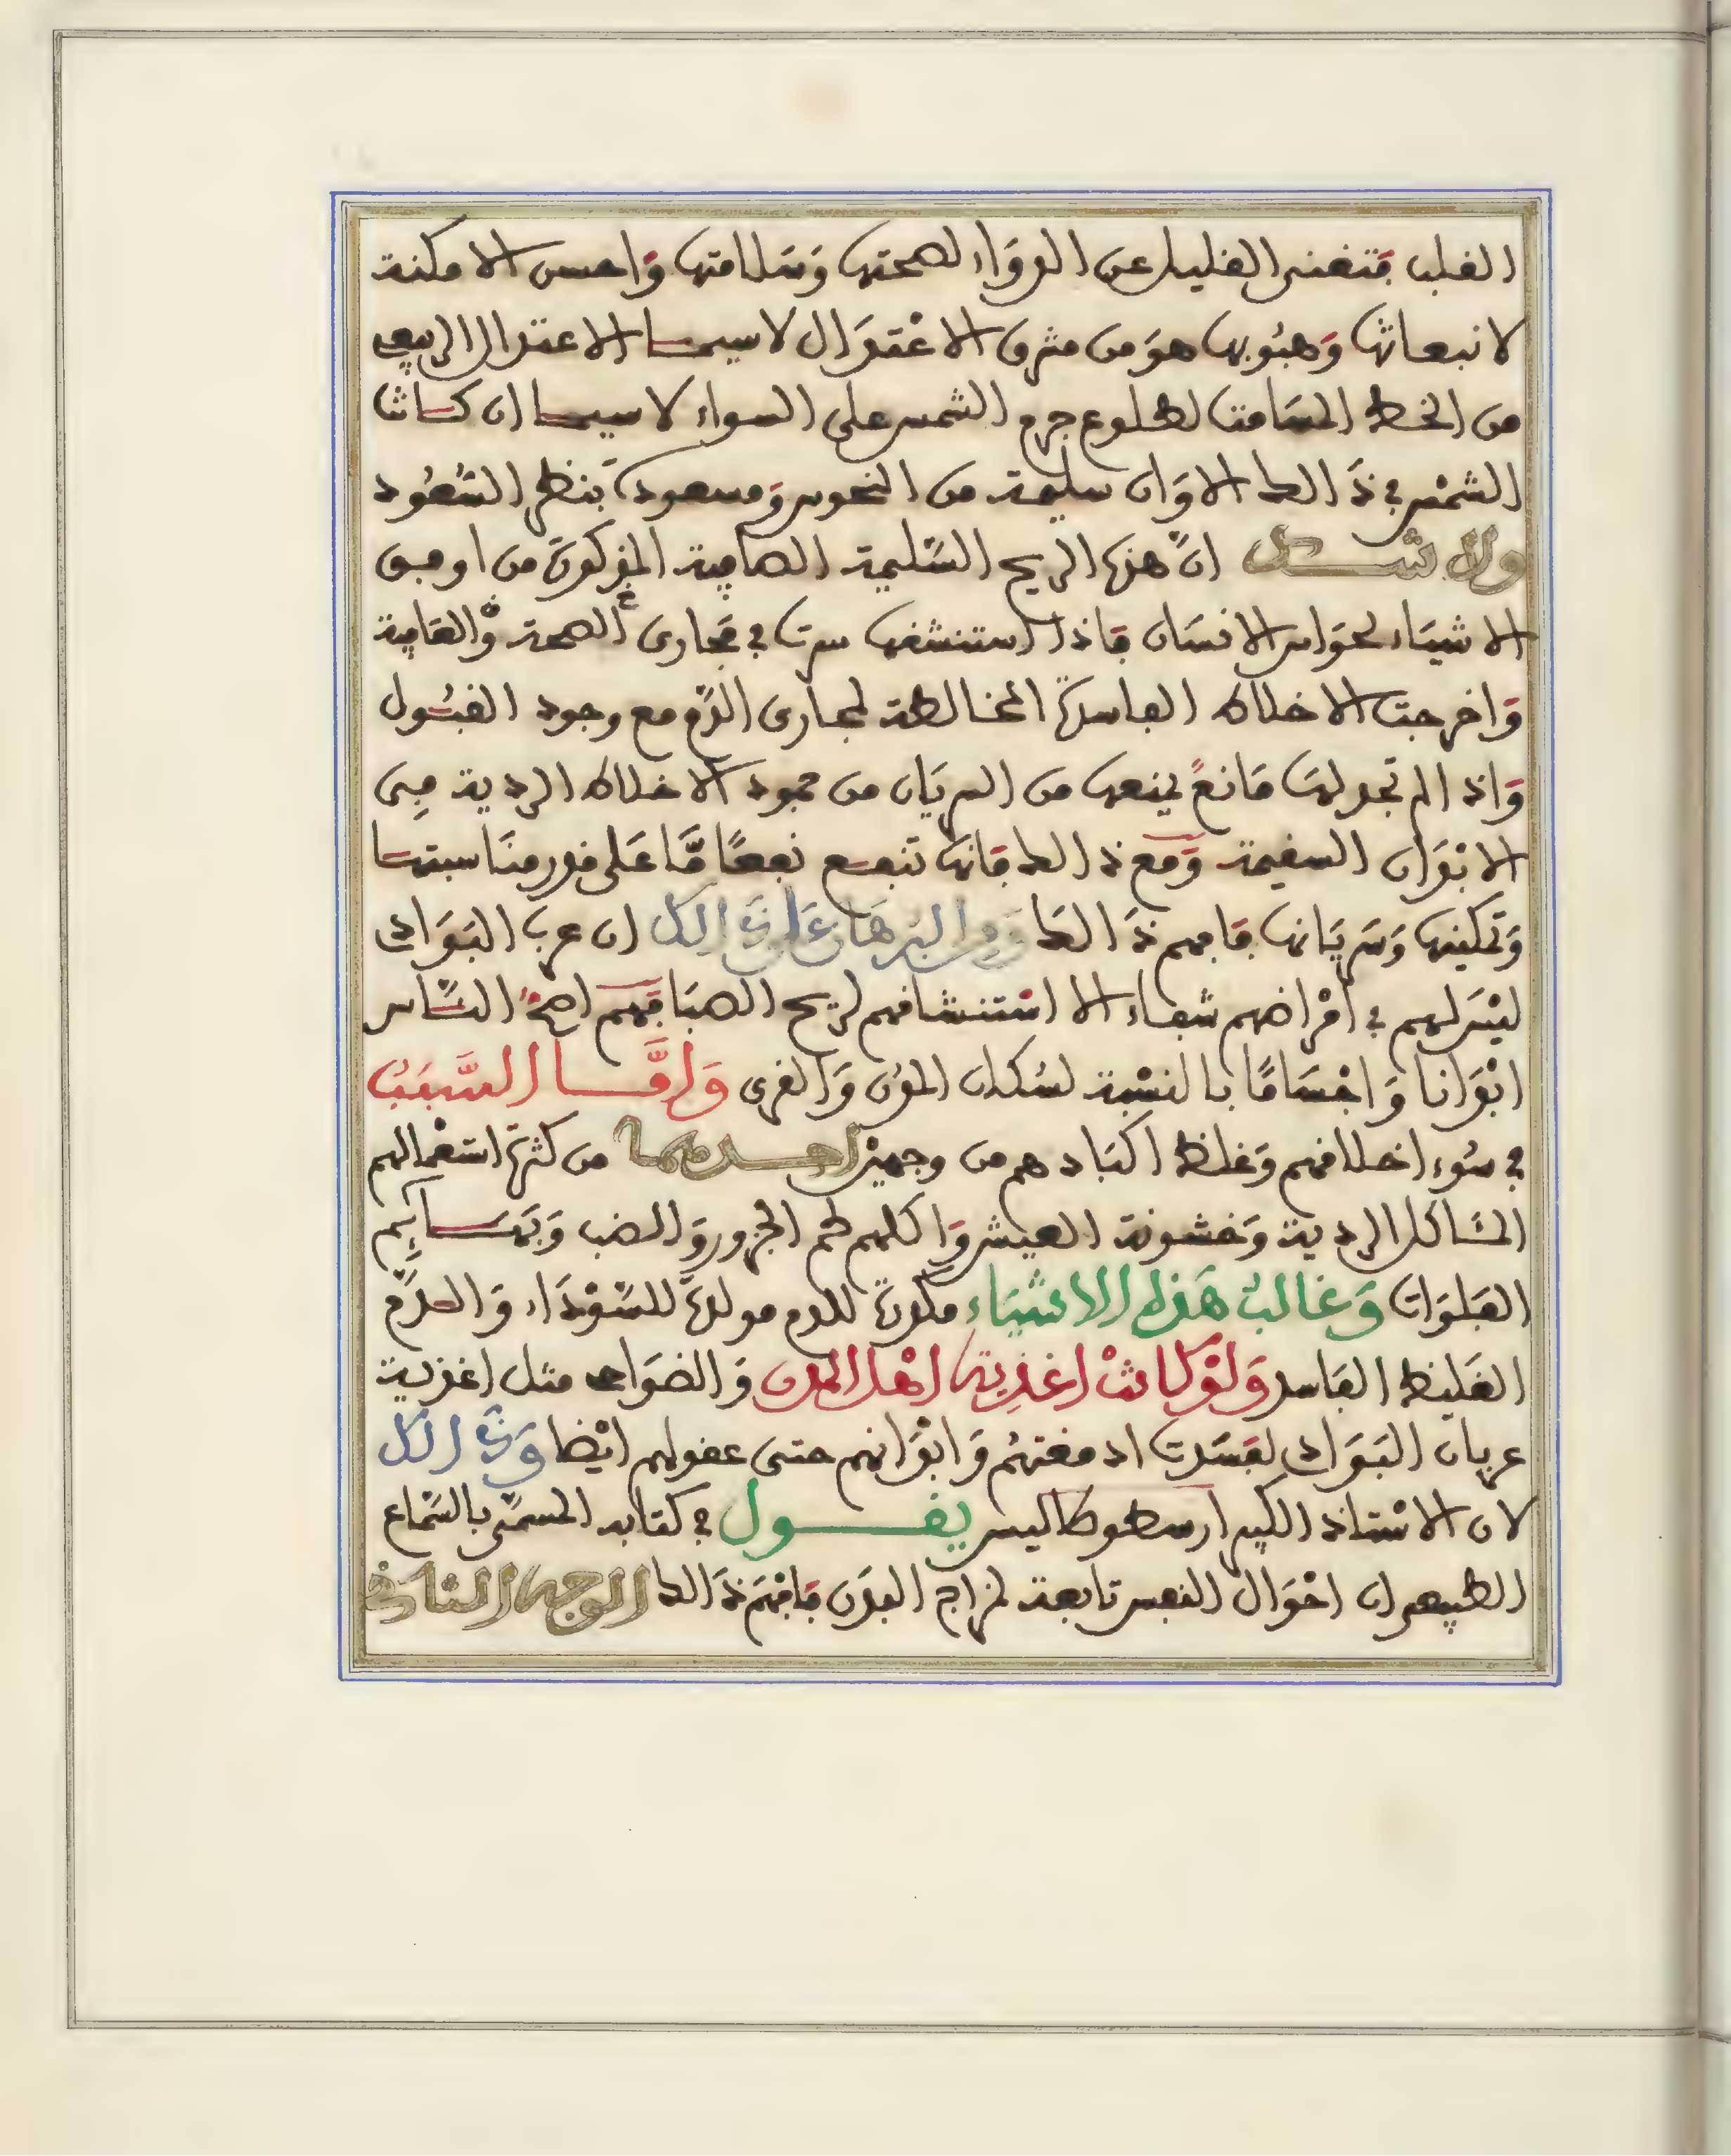 القلب فتغنى القليل عن الدوَاء لصحتها وَسَلامتها وَاحسن الامكنة
لانبعاثها وَهبُوبها هوَ من مشرق الاعْتدَال لاسيما الاعتدال الربيعي
من الخط المسَامت لطلوع جرم الشمس على السواء لاسيما ان كانت
الشمْس في ذَالك الاوَان سليمة من النحوس وَمسعودة بنظر السُّعُود
ولا شك انَّ هذه الريح السَّليمة الصافية المذكورَة من اوفق
الاشيَاء لحوَاس الانسَان فَاذا استنشقها سرت في مَجارى الصحة وَالعَافية
وَاخرجت الاخلاط الفاسدَة المخالطة لمجارى الدَّم مع وجود القبُول
وَاذا لم تجد لهَا مَانعً يمنعها من السريَان من جمود الاخلاط الردية في
الابْدَان السقيمة وَمَع ذالك فانهَا تنفع نفعًا مَّا عَلى قدر منَاسبتها
وَتمكينها وَسَريَانها فَافهم ذَالك وَمن البُرهَان عَلى ذَالك ان عربَ البَوَادى
ليْسَ لهم في امْراضهم شفاء الا اسْتنشاقهم لريح الصبَا فَهم اصحُّ النَّاس
ابْدَانا وَاجْسَامًا بالنسْبة لسُكان المدُن وَالقرى وَامَّا السَّبَبُ
في سُوء اخلاقهم وَغلظ اكبَادهم من وجهيْن احدهما من كثرَة استعْمالهم
المئَاكل الردية وَخشونة العيش وَاكلهم لحم الجزور وَالضب وَبهَائِم
الفلوَات وَغالبُ هَذه الاشيَاء مكدرَة للدم مولدَة للسَّوْدَاء وَالدَّم
الغَليظ الفاسد وَلوْ كانتْ اغذِية اهْل المدن وَالضوَاحى مثل اغذية
عربان البَوَادى لفسَدت ادمغتهُم وَابْدَانهم حتى عقولهم ايْضا وَذَالك
لان الاسْتاذ الكبير ارسطوطاليس يقول في كتابه المسمَّى بالسَّماع
الطبيعى ان احْوَال النفس تابعة لمزاج البدَن فَافهَم ذَالك الوجه الثانى